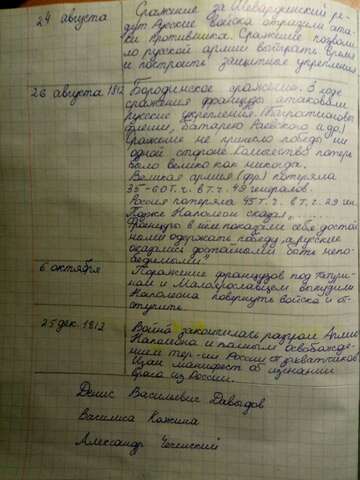 24 августа
Сражение за Шевардинский ре-
дут. Русские войска отразили ата-
ки противника. Сражение позволи-
ло русской армии выиграть время
и построить защитные укрепления
26 августа 1812
Бородинское сражение. В ходе
сражения французы атаковали
русские укрепления (Багратионовы
флеши, батарею Раевского и др)
Сражение не принесло победы ни
одной стороне. Количество потерь
было велико как никогда.
Великая армия (фр) потеряла
35-60 т. ч в т. ч. 49 генералов.
Россия потеряла 45 т. ч. в т. ч 29 ген.
Позже Наполеон сказал,
"Французы в нём показали себя достой-
ными одержать победу, а русские
оказались достойными быть непо-
бедимыми"
6 октября
Поражение французов под Тарути-
ном и Малоярославцем вынудили
Наполеона повернуть войска и от-
ступить.
25 дек. 1812
Война закончилась разгром Армии
Наполеона и полным освобожде-
нием тер-ии России от захватчиков
Издан манифест об изгнании
врага из России.
Денис Васильевич Давыдов
Василиса Кожина
Александр Чеченский